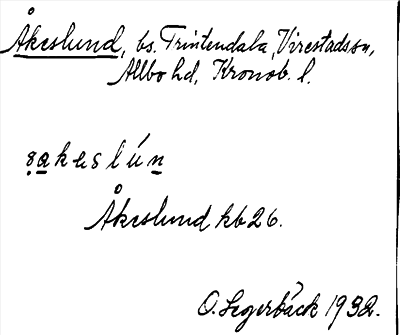 Åkeslund, bs. Trintendala, Virestadssn,
Allbo hd, Kronob. l.
åkeslún
Åkeslund kb 26.
O. Segerbäck 1932.